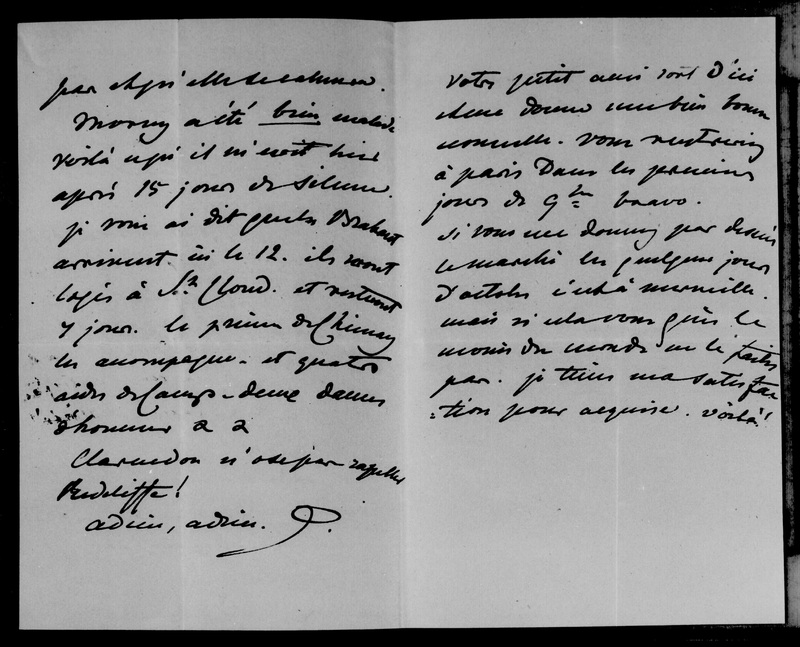 par et qu'elle se calmera.
Morny a été bien malade
voilà ce qu'il m'écrit hier
après 15 jours de silence.
je vous ai dit que les Brabant
arrivent ici le 12. ils seront
logés à St Cloud. et resteront
7 jours. le prince de Chimay
les accompagne. et quatre
aides de camp - deux dames
d'honneur & &
Clarendon n'ose pas rappeller
Redcliffe!
adieu, adieu. D.
votre petit ami sort d'ici
il me donne une bien bonne
nouvelle. vous reviendrez
à paris dans les premiers
jours de 9bre bravo.
si vous me donnez par dessus
le marché les quelques jours
d'octobre c'est à merveille.
mais si cela vous gêne le
moins du monde ne le faites
pas. je tiens ma satisfac
=tion pour acquise. voilà!